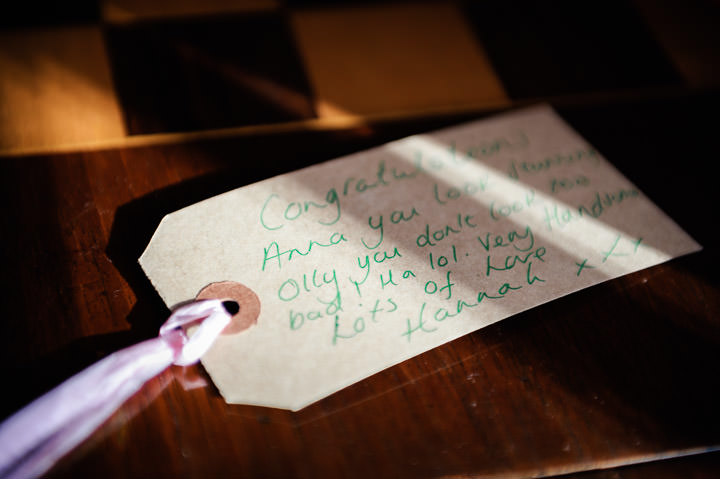 Congratulations!
Anna you look stunning
Olly you don't look too
bad! Ha lol. Very Handsome
Lots of Love
Hannah x x x